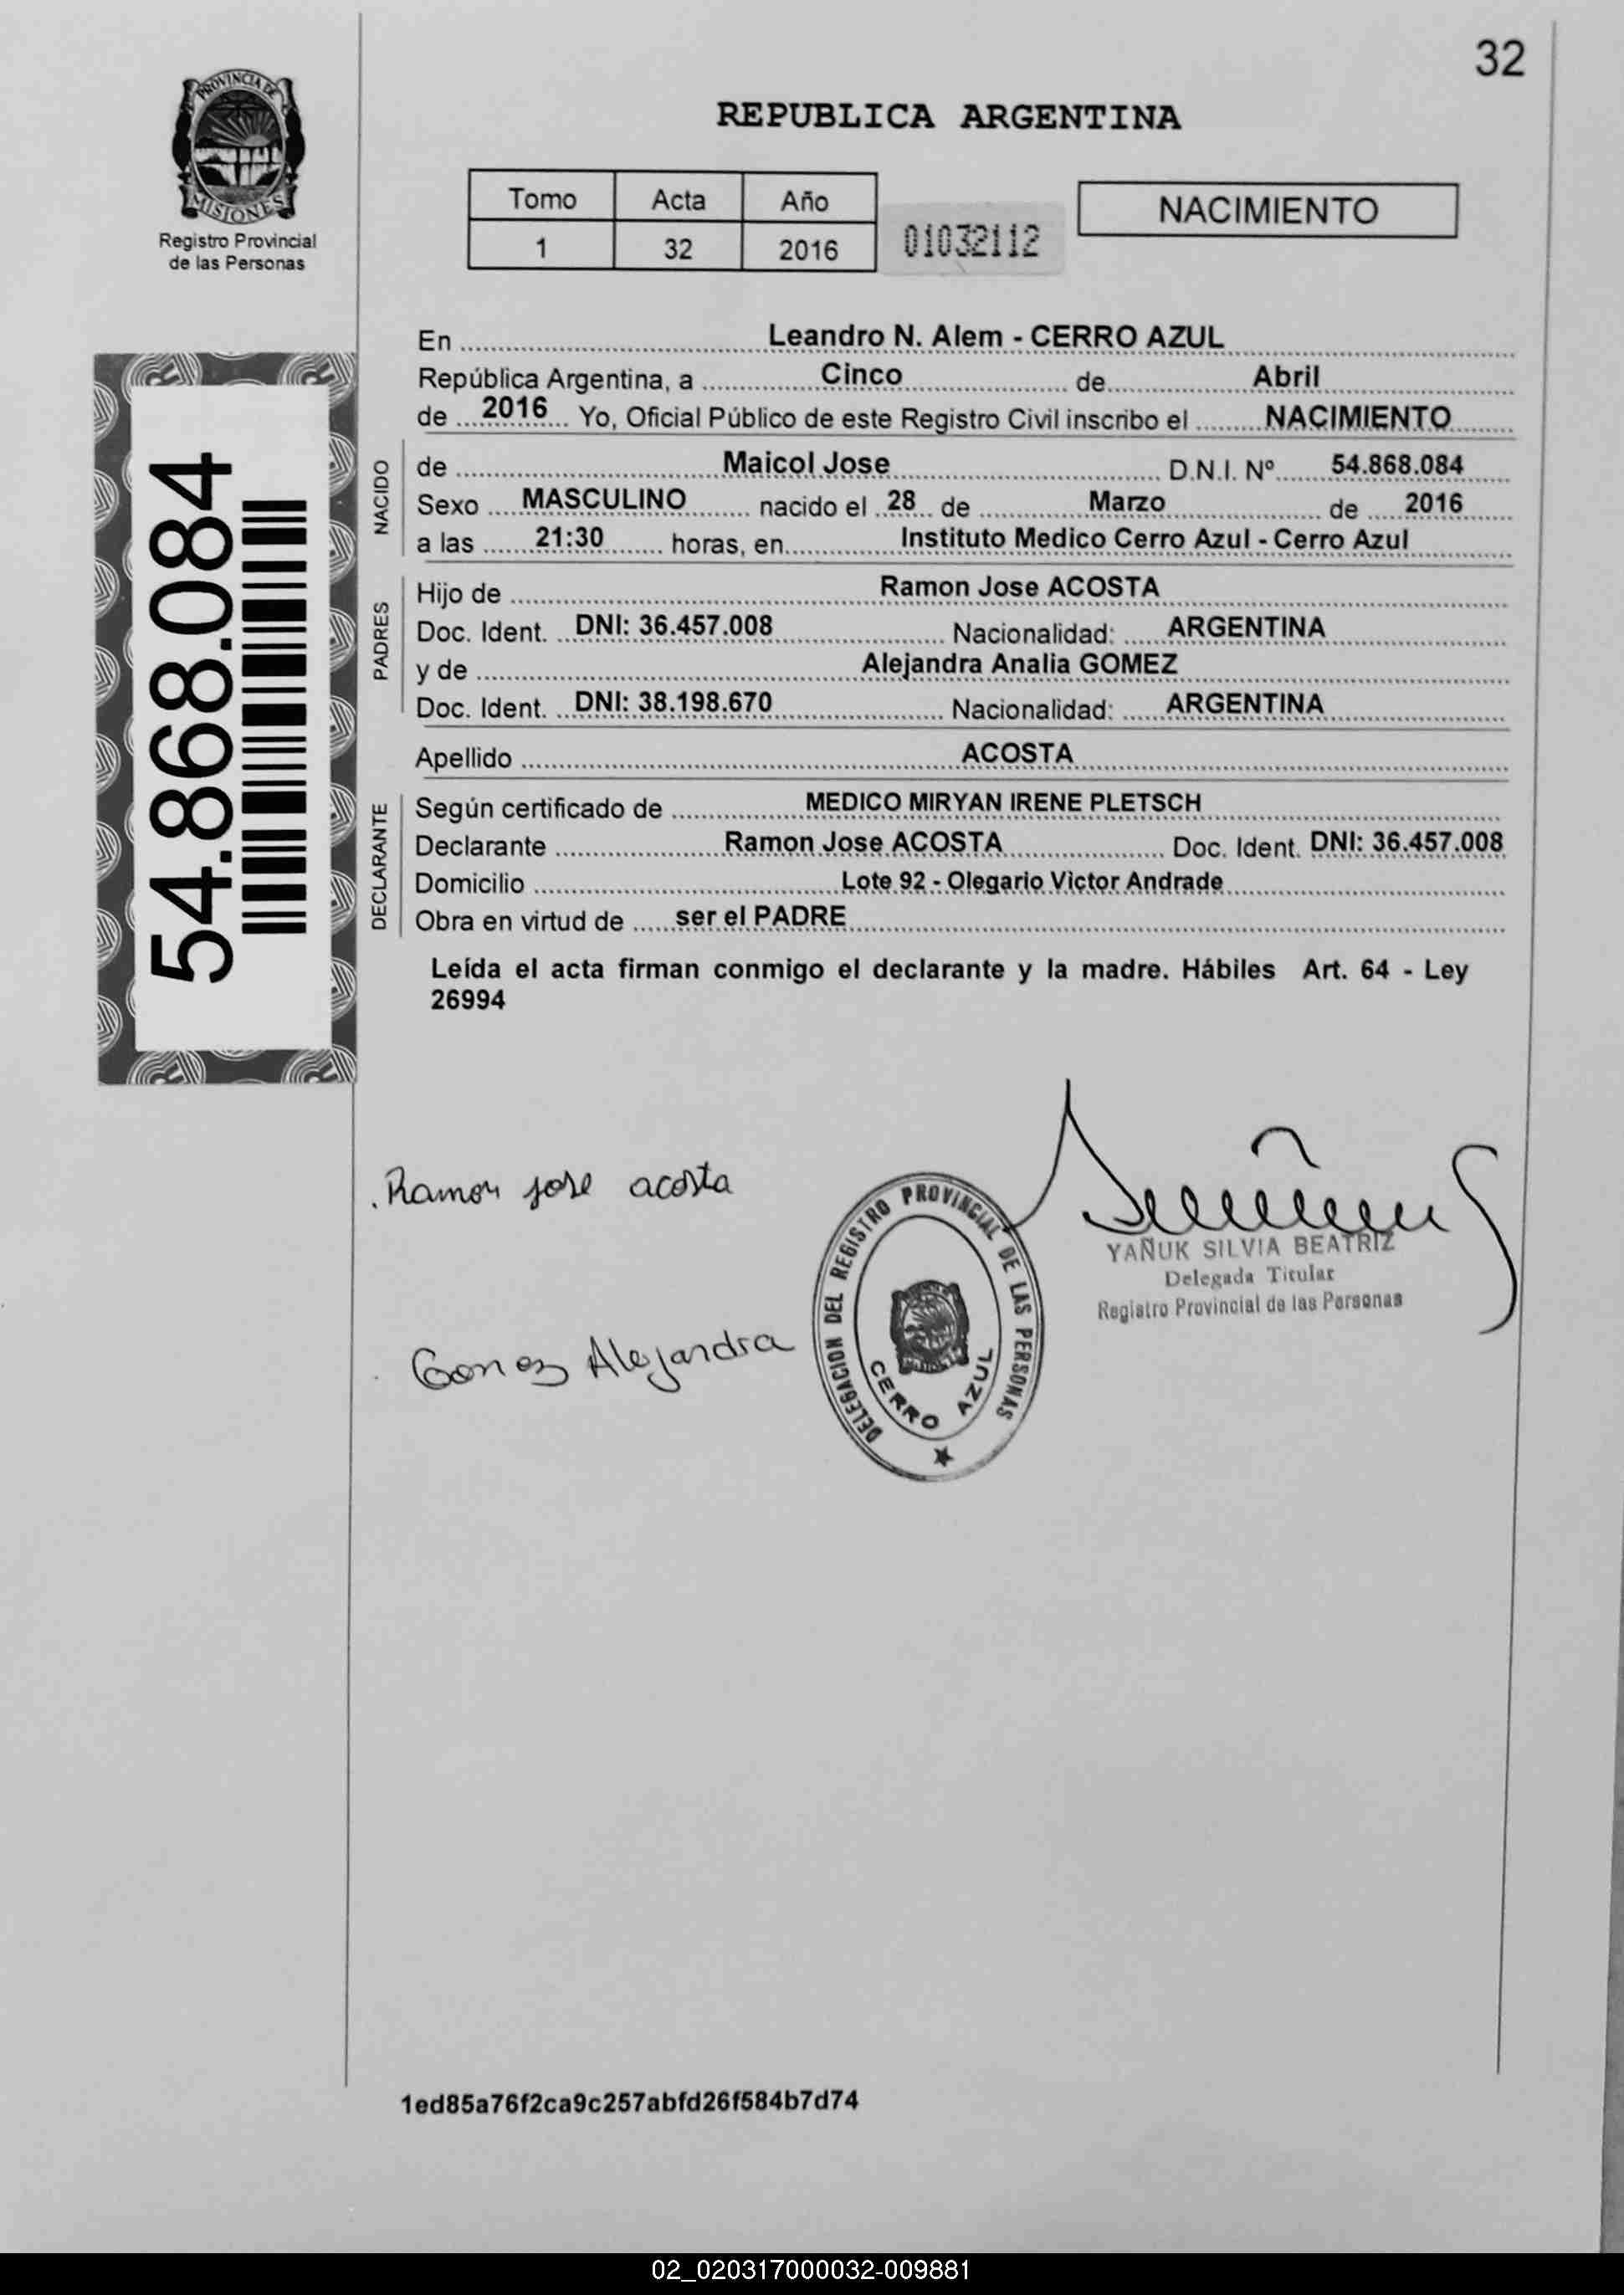 32
PROVINCIA DE
MISIONES
Registro Provincial
de las Personas
REPUBLICA ARGENTINA
Tomo Acta Año
1 32 2016
01032112
NACIMIENTO
54.868.084
En Leandro N. Alem - CERRO AZUL
República Argentina, a Cinco de Abril
de 2016 Yo, Oficial Público de este Registro Civil inscribo el NACIMIENTO
NACIDO
de Maicol Jose D.N.I. Nº 54.868.084
Sexo MASCULINO nacido el 28 de Marzo de 2016
a las 21:30 horas, en Instituto Medico Cerro Azul - Cerro Azul
PADRES
Hijo de Ramon Jose ACOSTA
Doc. Ident. DNI: 36.457.008 Nacionalidad: ARGENTINA
y de Alejandra Analia GOMEZ
Doc. Ident. DNI: 38.198.670 Nacionalidad: ARGENTINA
Apellido ACOSTA
DECLARANTE
Según certificado de MEDICO MIRYAN IRENE PLETSCH
Declarante Ramon Jose ACOSTA Doc. Ident. DNI: 36.457.008
Domicilio Lote 92 - Olegario Victor Andrade
Obra en virtud de ser el PADRE
Leída el acta firman conmigo el declarante y la madre. Hábiles Art. 64 - Ley
26994
Ramon jose acosta
Gomez Alejandra
DELEGACION DEL REGISTRO PROVINCIAL DE LAS PERSONAS
CERRO AZUL
YAÑUK SILVIA BEATRIZ
Delegada Titular
Registro Provincial de las Personas
1ed85a76f2ca9c257abfd26f584b7d74
02_020317000032-009881